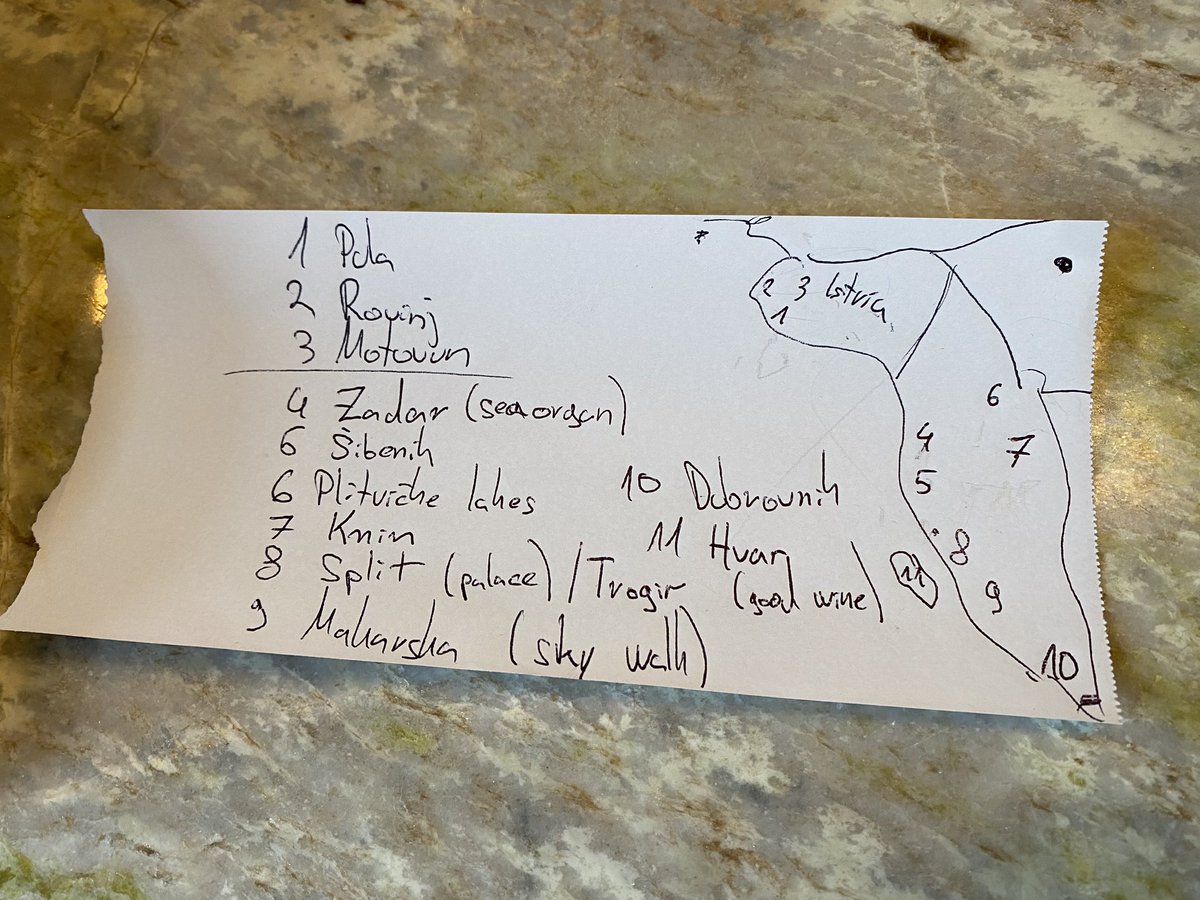 1 Pola
2 Rovinj
3 Motovun
4 Zadar (sea organ)
6 Šibenik
6 Plitvičke lakes
7 Knin
8 Split (palace) / Trogir
9 Makarska (sky walk)
10 Dobrovnik
11 Hvar
(good wine)
2 3 Istria
1
6
4 7
5
8
11
9
10